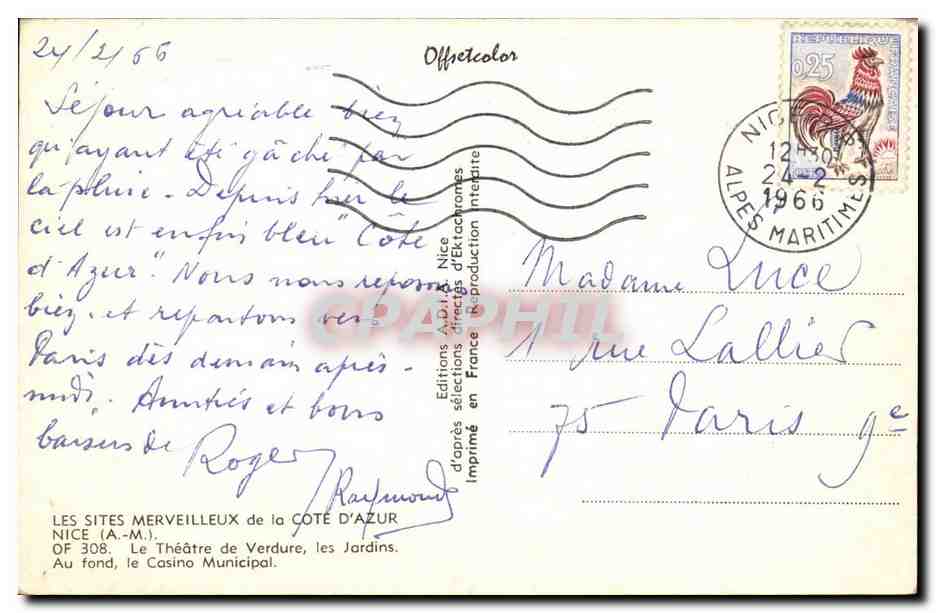 24/2/66
Séjour agréable bien
qu'ayant été gâché par
la pluie - Depuis hier le
ciel est enfin bleu "Côte
d'Azur". Nous nous reposons
bien et repartons vers
Paris dès demain après-
midi. Amitiés et bons
baisers de
Roger
Raymonde
LES SITES MERVEILLEUX de la COTE D'AZUR
NICE (A.-M.).
OF 308. Le Théâtre de Verdure, les Jardins.
Au fond, le Casino Municipal.
Offsetcolor
Editions A.D.I.A. Nice
d'après sélections directes d'Ektachromes
Imprimé en France Reproduction interdite
REPUBLIQUE FRANÇAISE
0,25
NICE
12H30
24-2
1966
ALPES MARITIMES
Madame LUCE
1 rue Lallier
75 Paris 9e
CPAPHIL